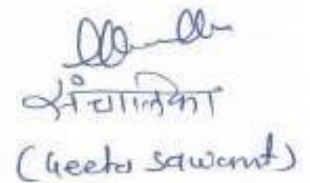 संचालिका
(Geeta Sawant)